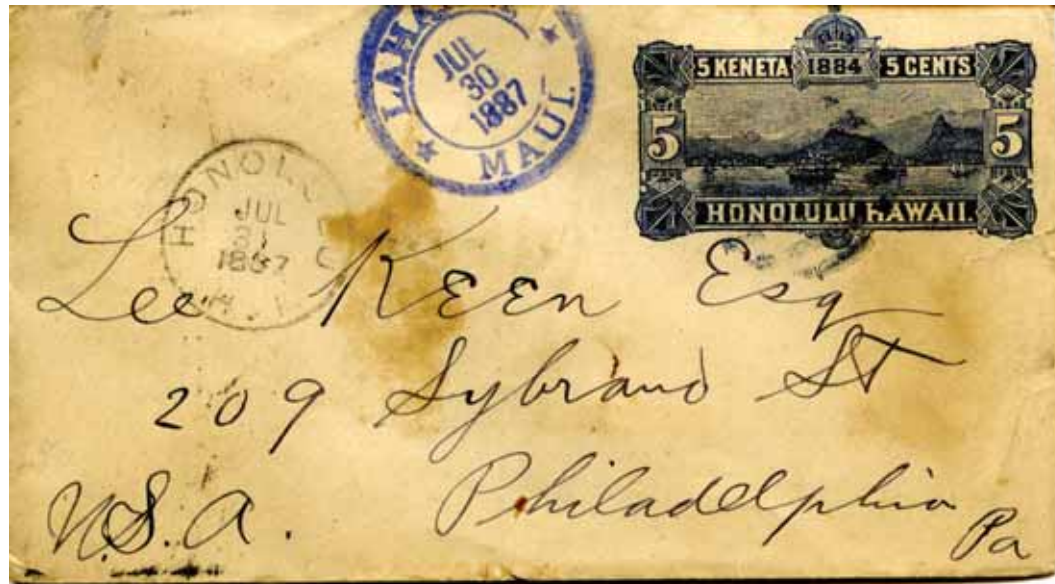 LAHA
JUL
30
1887
MAUI.
5 KENETA 1884 5 CENTS
5 5
HONOLULU, HAWAII.
HONOLU
JUL
31
1887
H. I.
Lee Keen Esq
209 Sybrand St
Philadelphia
Pa
U.S.A.